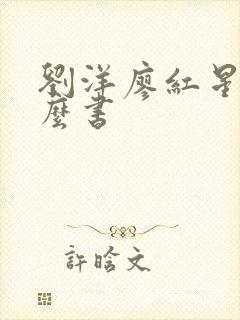 劉洋廖紅星
麼書
許晗文